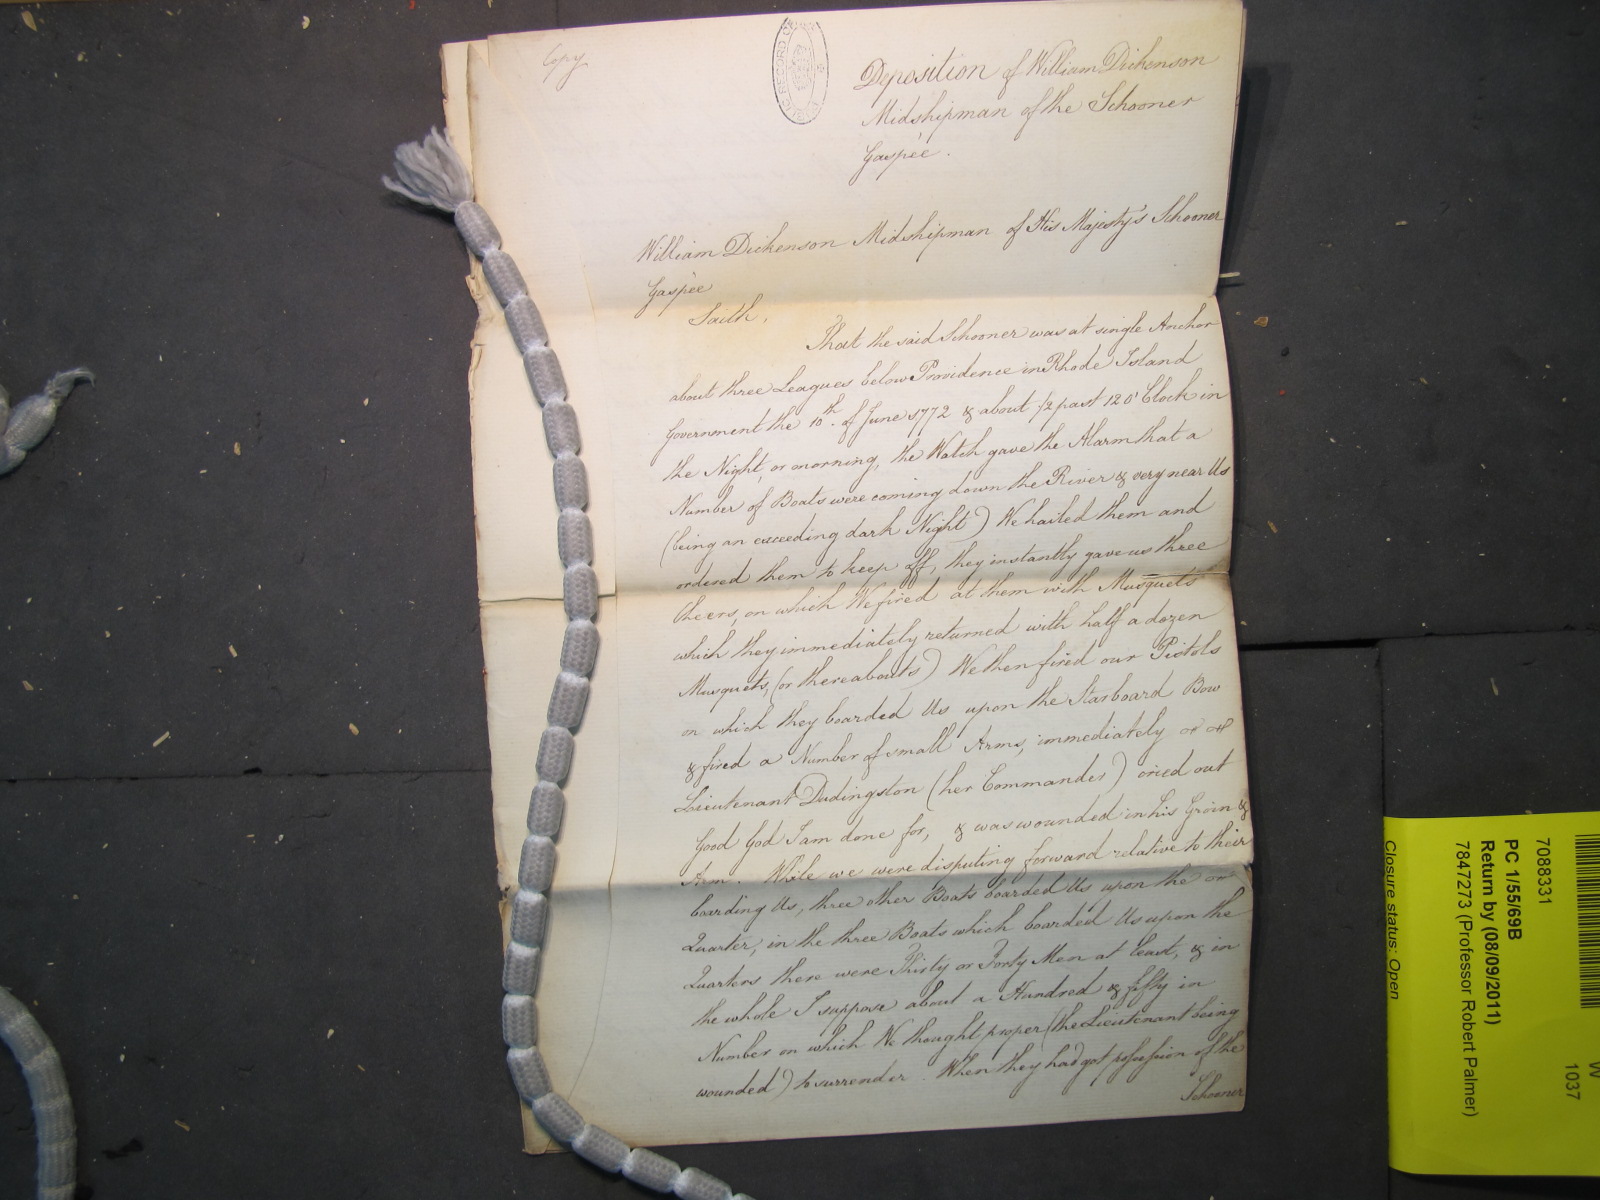 Copy
PUBLIC RECORD OF
Deposition of William Dickenson
Midshipman of the Schooner
Gaspèe.
William Dickenson Midshipman of His Majesty's Schooner
Gaspèe
Saith,
That the said Schooner was at single Anchor
about three Leagues below Providence in Rhode Island
Government the 10th. of June 1772 & about 1/2 past 12 O'Clock in
the Night, or morning, the Watch gave the Alarm that a
Number of Boats were coming down the River & very near Us
(being an exceeding dark Night) We hailed them and
ordered them to keep off, they instantly gave us three
Cheers, on which We fired at them with Musquets
which they immediately returned with half a dozen
Musquets, (or thereabouts) We then fired our Pistols
on which they boarded Us upon the Starboard Bow
& fired a Number of small Arms, immediately
Lieutenant Dudingston (her Commander) cried out
Good God I am done for, & was wounded in his Groin &
Arm. While we were disputing forward relative to their
boarding Us, three other Boats boarded Us upon the
Quarter, in the three Boats which boarded Us upon the
Quarters there were Thirty or Forty Men at least, & in
the whole I suppose about a Hundred & fifty in
Number on which We thought proper (the Lieutenant being
wounded) to surrender. When they had got possession of the
Schooner
7088331
PC 1/55/69B
Return by (08/09/2011)
7847273 (Professor Robert Palmer)
Closure status: Open
W
1037